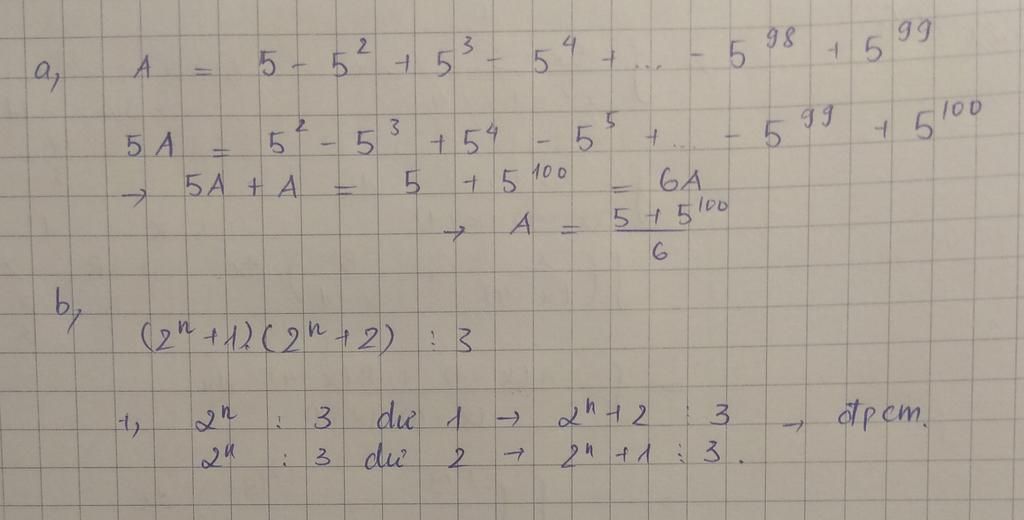 a, A = 5 - 5² + 5³ - 5⁴ + ... - 5⁹⁸ + 5⁹⁹
5A = 5² - 5³ + 5⁴ - 5⁵ + ... - 5⁹⁹ + 5¹⁰⁰
→ 5A + A = 5 + 5¹⁰⁰ = 6A
→ A = (5 + 5¹⁰⁰)/6
b,
(2ⁿ + 1)(2ⁿ + 2) ⋮ 3
+, 2ⁿ : 3 dư 1 → 2ⁿ + 2 ⋮ 3 → đpcm.
2ⁿ : 3 dư 2 → 2ⁿ + 1 ⋮ 3.